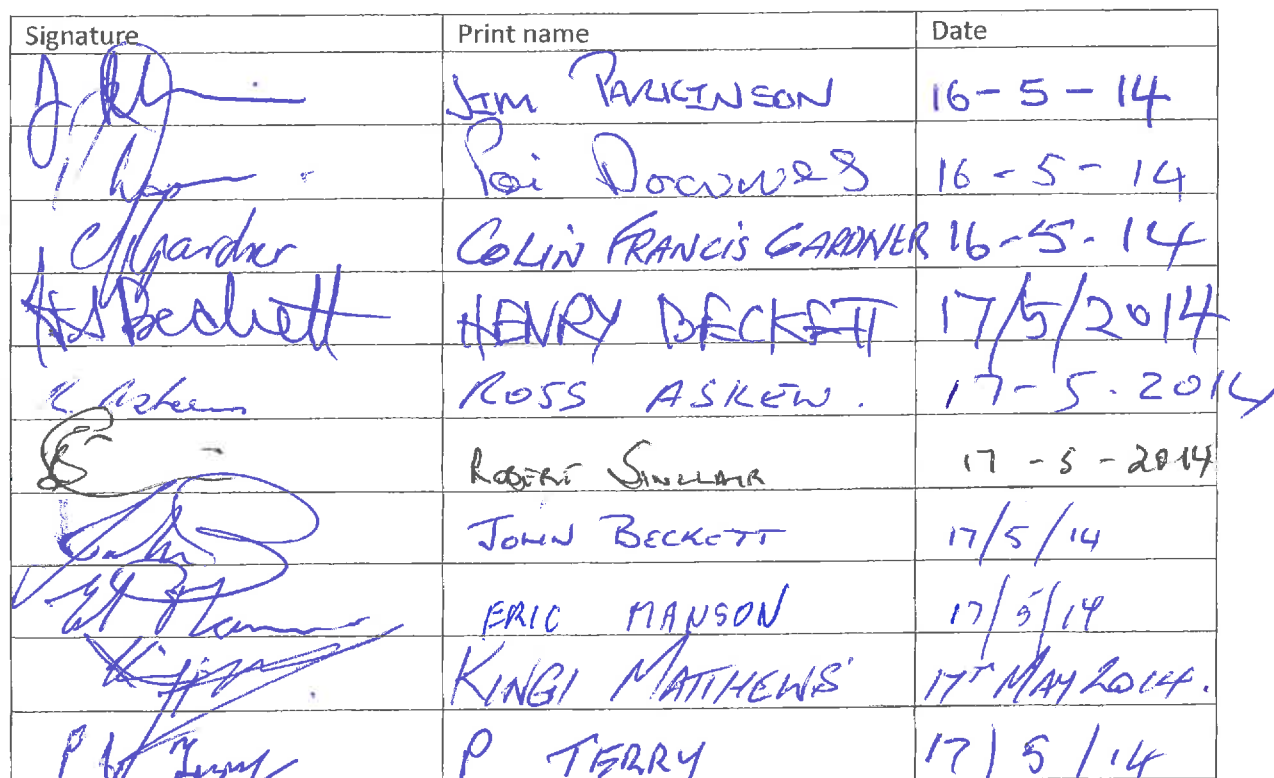 Signature Print name Date
JIM PARKINSON 16-5-14
16-5-14
C Gardner COLIN FRANCIS GARDNER 16-5-14
Beckett HENRY BECKETT 17/5/2014
R. Askew ROSS ASKEW. 17-5.2014
ROBERT SINCLAIR 17-5-2014
JOHN BECKETT 17/5/14
ERIC MANSON 17/5/14
KINGI MATTHEWS 17T MAY 2014.
P TERRY 17/5/14